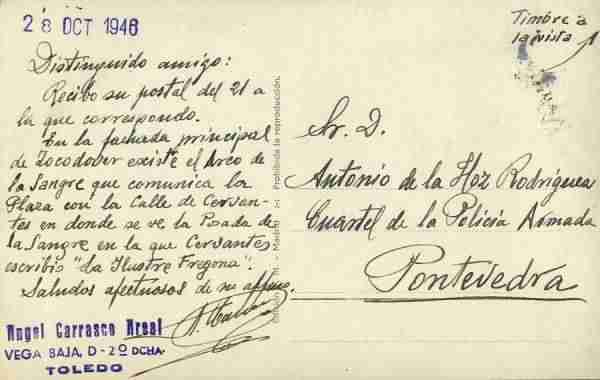 28 OCT 1946
Timbre a
la vista
Distinguido amigo:
Recibo su postal del 21 a
la que correspondo.
En la fachada principal
de Zocodover existe el Arco de
la Sangre que comunica la
Plaza con la Calle de Cervan-
tes en donde se ve la Posada de
la Sangre en la que Cervantes
escribió "La Ilustre Fregona".
Saludos afectuosos de su affmo.
Angel Carrasco Areal
VEGA BAJA, D-2º DCHA.
TOLEDO
Madrid
Prohibida la reproducción.
Sr. D.
Antonio de la Hoz Rodríguez
Cuartel de la Policía Armada
Pontevedra